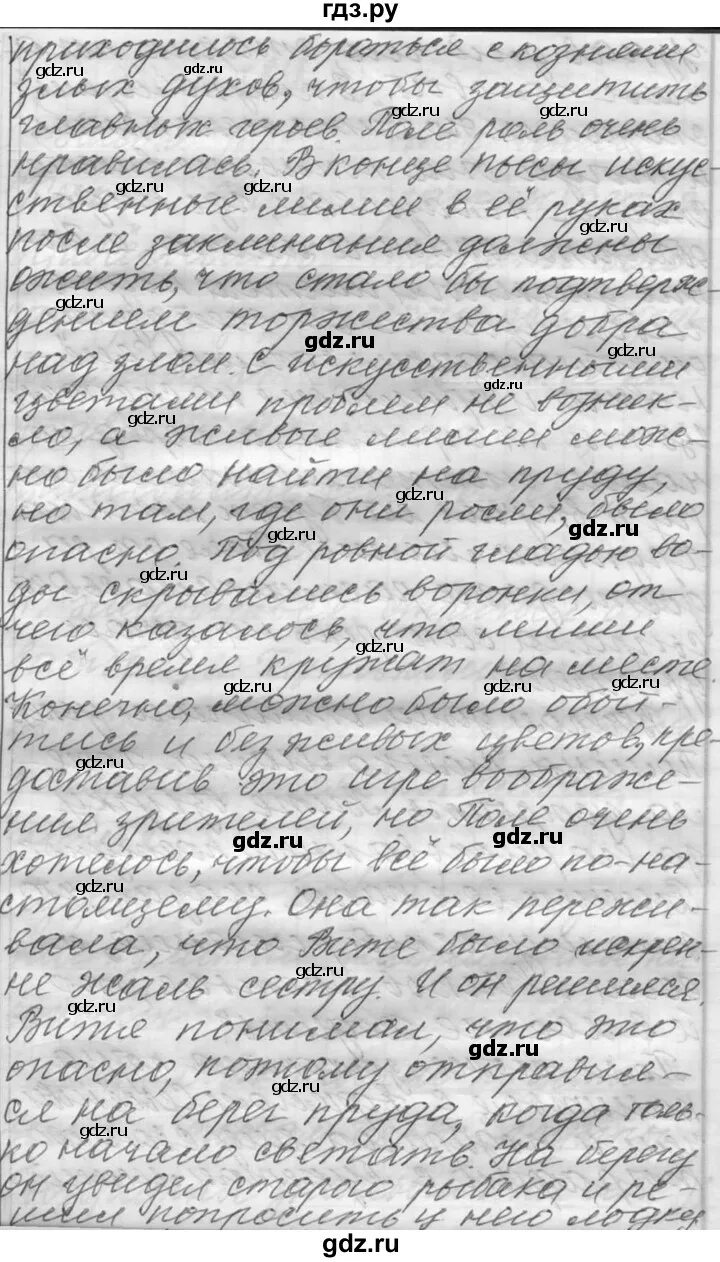 гдз.ру
приходилось бораться с кознями
злых духов, чтобы защитить
главных героев. Поле роль очень
нравилась. В конце пьесы искус-
ственные лилии в её руках
после заклинания должны
ожить, что стало бы подтверж-
дением торжества добра
над злом. С искусственными
цветами проблем не возник-
ло, а живые лилии мож-
но было найти на пруду,
но там, где они росли, было
опасно. Под ровной гладью во-
ды скрывались воронки, от
чего казалось, что лилии
всё время кружат на месте.
Конечно, можно было обой-
тись и без живых цветов, пре-
доставив это игре воображе-
ния зрителей, но Поле очень
хотелось, чтобы всё было по-на-
стоящему. Она так пережи-
вала, что Вите было искрен-
не жаль сестру. И он решился.
Витя понимал, что это
опасно, поэтому отправил-
ся на берег пруда, когда толь-
ко начало светать. На берегу
он увидел старого рыбака и ре-
шил попросить у него лодку
gdz.ru